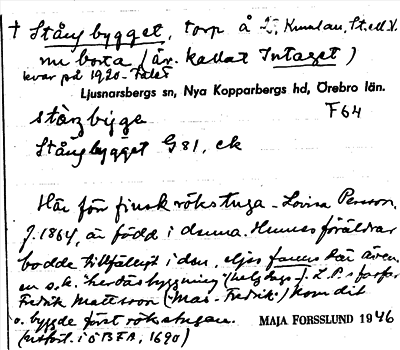 † Stångbygget, torp å L. Kumlan, St. o. ll. V.
nu borta (äv. kallat Intaget)
kvar på 1920-talet
Ljusnarsbergs sn, Nya Kopparbergs hd, Örebro län.
F64
stångbygge
Stångbygget G81, ek
Här förr finsk rökstuga - Lovisa Persson,
f. 1864, är född i denna. Hennes föräldrar
bodde tillfälligt i den, eljes fanns här även
en s.k. herdasbyggning (helgdags-). L.P:s farfar
Fredrik Mattsson ("Mas-Fredrik") kom dit
o. byggde först rökstugan.
MAJA FORSSLUND 1946
(östl. i ÖBFA, 1690)